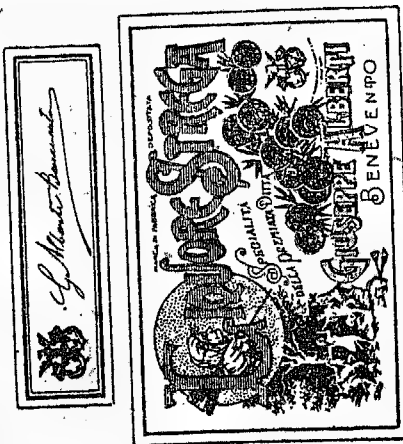 G. Alberti Benevento
MARCA DI FABBRICA DEPOSITATA
LIQUORE STREGA
SPECIALITÀ
DELLA PREMIATA DITTA
GIUSEPPE ALBERTI
BENEVENTO